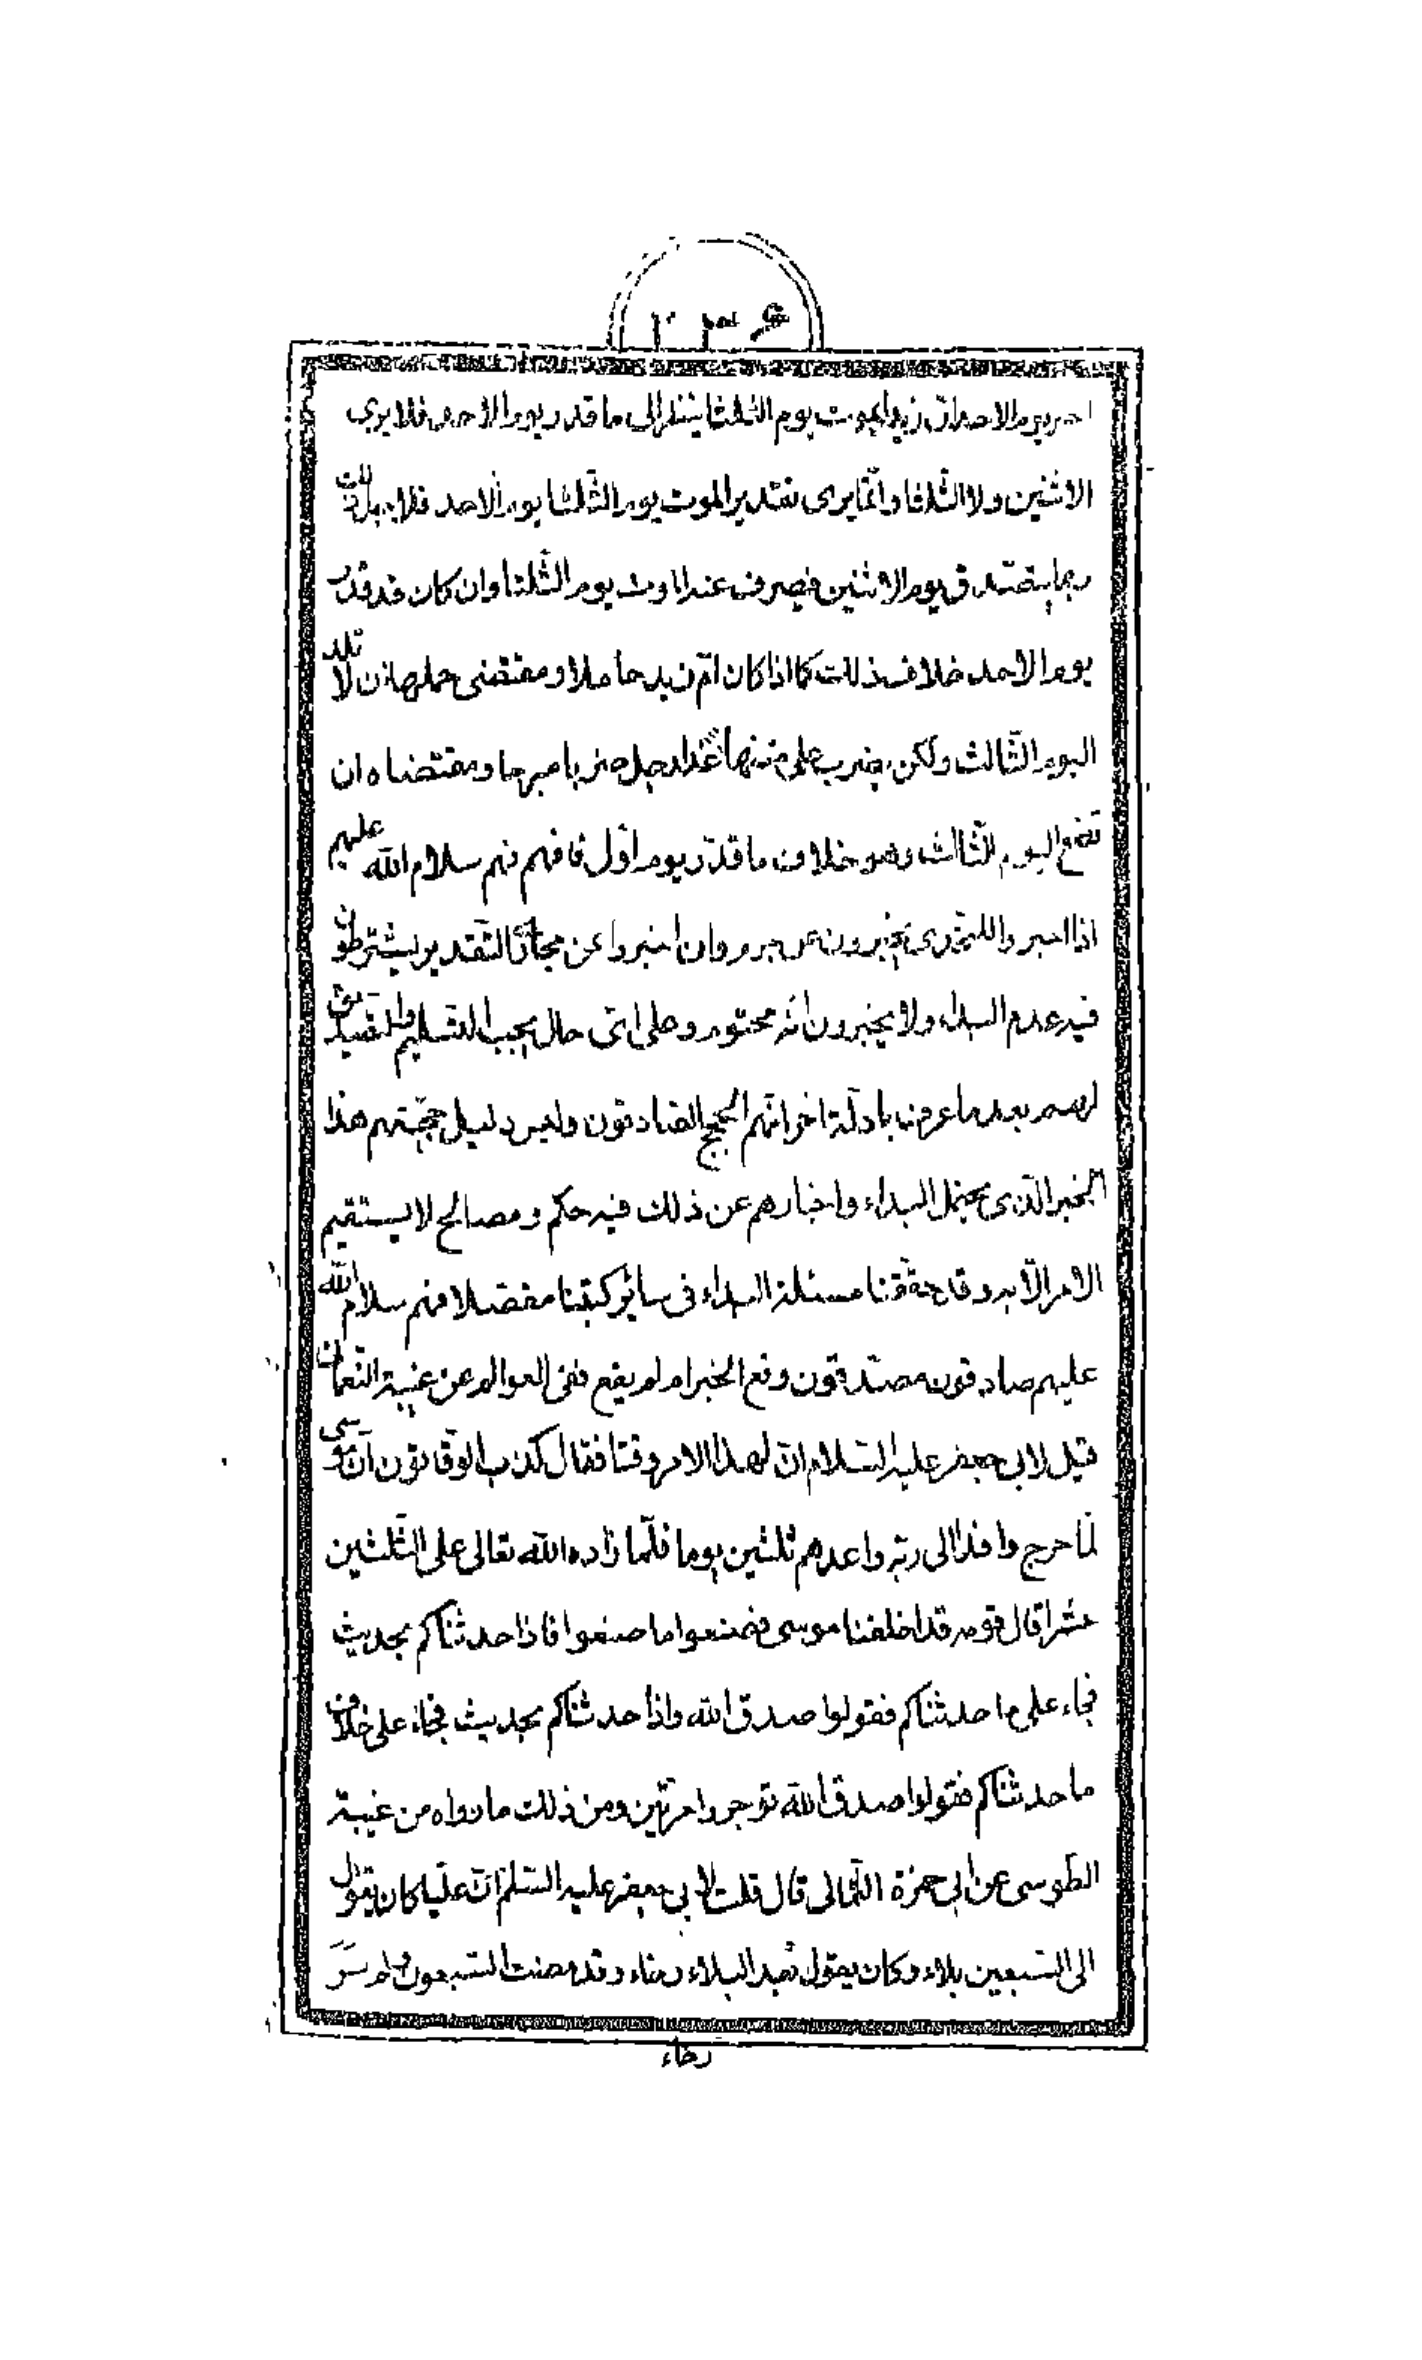 ٢٣۶
يوم الاحد ان زيدا يموت يوم الثلثا ينظر الى ما قدر يوم الاحد فلا يرى
الاثنين ولا الثلثا وانّما يرى تقدير الموت يوم الثّلثا يوم الاحد فلا
ربما يتصدّق يوم الاثنين فيصرف عنه الموت يوم الثّلثا وان كان قد قدّر
يوم الاحد خلاف ذلك كما اذا كان امّ زيد حاملا ومقتضى حملها ان لا تلد
اليوم الثّالث ولكن يضرب على متنها غدا رجل ضربا مبرحا ومقتضاه ان
تضع اليوم الثّالث وهو خلاف ما قدّر يوم اوّل فافهم فهم سلام الله عليهم
اذا اخبروا يخبرون عن وان اخبروا عن مجاري التّقدير يشترطون
فيه عدم البداء ولا يخبرون انّه محتوم وعلى ايّ حال يجب التّسليم والتّصديق
لهم بعد ما عرفنا بادلّة اخر انّهم الحجج الصّادقون وليس دليل حجّيتهم هذا
الخبر الّذي يحتمل البداء واخبارهم عن ذلك فيه حكم ومصالح لا يستقيم
الامر الّا به وقد حقّقنا مسئلة البداء في سائر كتبنا مفصّلا فهم سلام الله
عليهم صادقون مصدّقون وقع الخبر ام لم يقع ففي العوالم عن غيبة النّعمان
قيل لابي جعفر عليه السّلام انّ لهذا الامر وقتا فقال كذب الوقّاتون انّ موسى
لمّا خرج وافدا الى ربّه واعدهم ثلثين يوما فلمّا زاده الله تعالى على الثّلثين
عشرا قال قومه قد اخلفنا موسى فصنعوا ما صنعوا فاذا حدثناكم بحديث
فجاء على ما حدثناكم فقولوا صدق الله واذا حدثناكم بحديث فجاء على خلاف
ما حدثناكم فقولوا صدق الله توجروا مرتّين ومن ذلك ما رواه من غيبة
الطّوسى عن ابي حمزة الثّمالى قال قلت لابي جعفر عليه السّلم انّ عليّا كان يقول
الى السّبعين بلاء وكان يقول بعد البلاء رخاء وقد مضت السّبعون ولم نر
رخاء